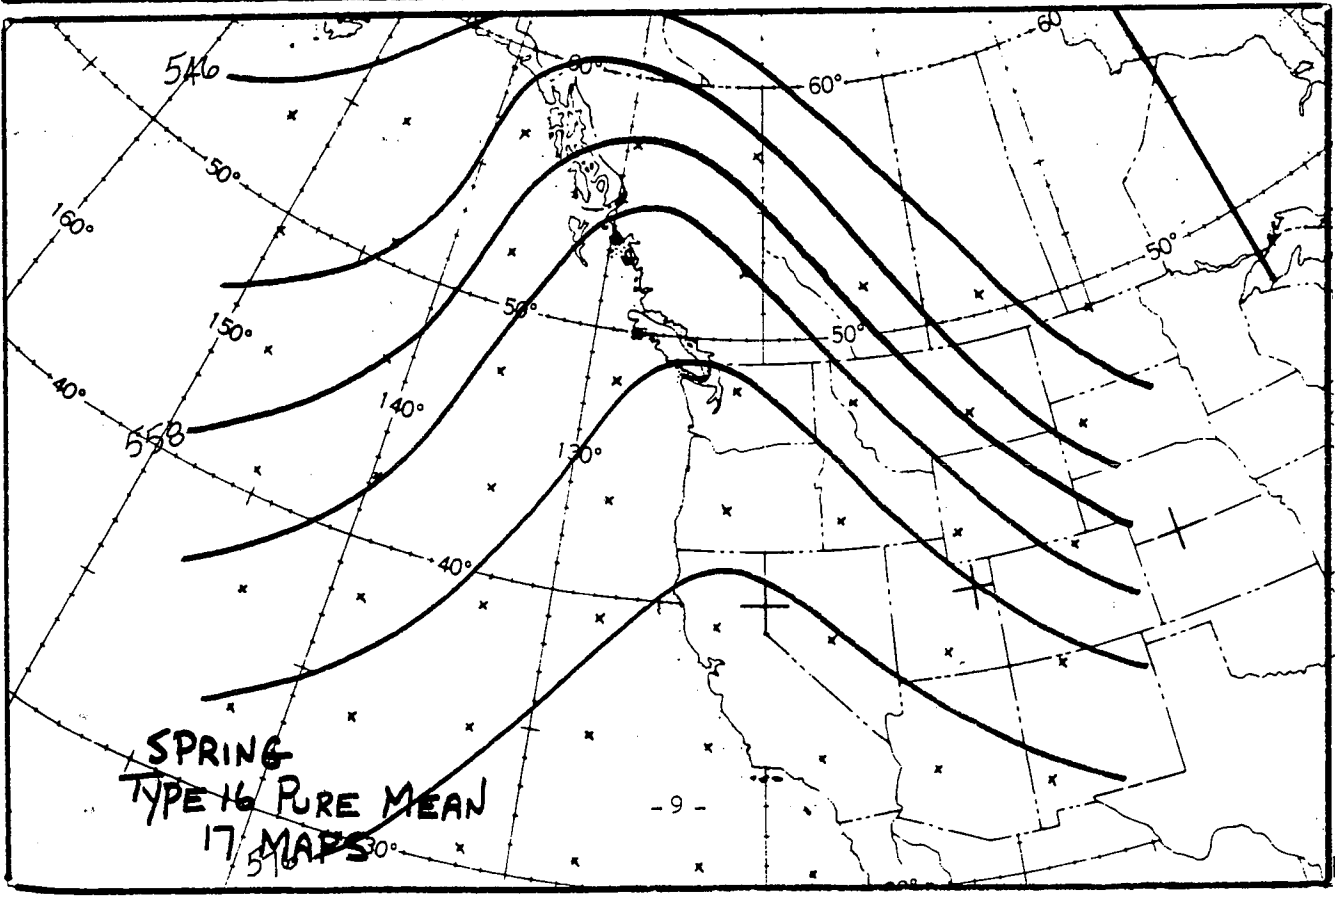 60
546
60°
60°
50°
160°
50°
50°
150°
50°
40°
140°
558
130°
40°
SPRING
TYPE 16 PURE MEAN
- 9 -
17 MAPS
576
30°